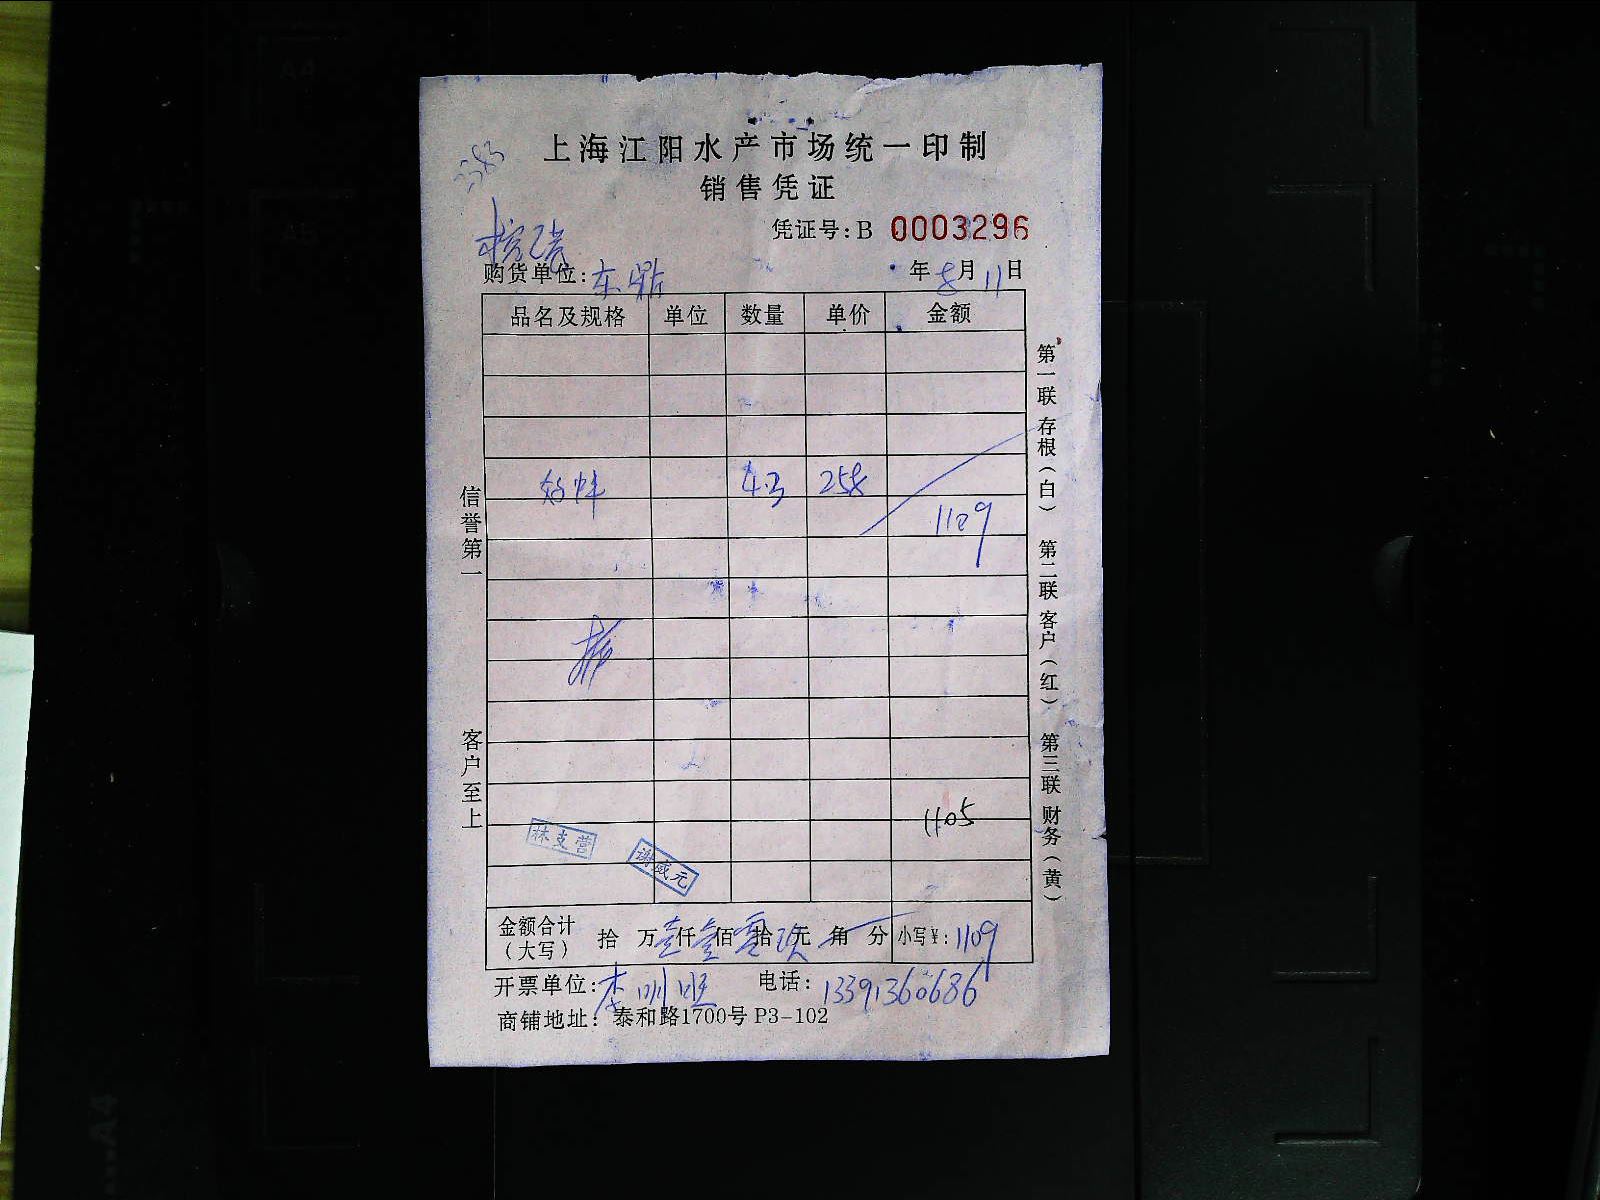 上海江阳水产市场统一印制
3383
销售凭证
凭证号:B 0003296
购货单位:东鼎 年8月11日
品名及规格 单位 数量 单价 金额
4.3 258
1109
1105
林支营
谢威元
金额合计(大写) 拾 万壹仟壹佰零拾玖元 角 分 小写¥:1109
开票单位:李训旺 电话:13391360686
商铺地址:泰和路1700号P3-102
信誉第一
客户至上
第一联 存根(白) 第二联 客户(红) 第三联 财务(黄)